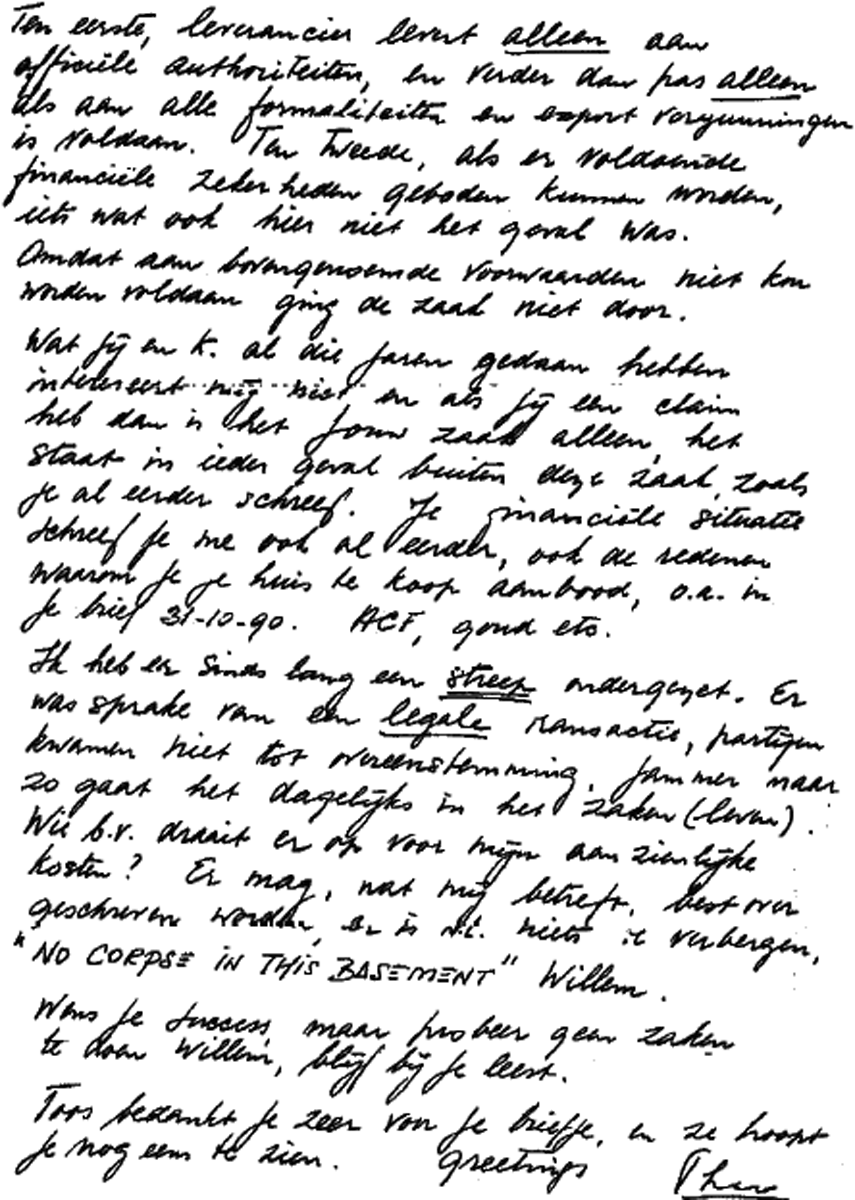 Ten eerste, leverancier levert alleen aan
officiële authoriteiten, en verder dan pas alleen
als aan alle formaliteiten en export vergunningen
is voldaan. Ten tweede, als er voldoende
financiële zekerheden geboden kunnen worden,
iets wat ook hier niet het geval was.
Omdat aan bovengenoemde voorwaarden niet kon
worden voldaan ging de zaak niet door.
Wat jij en K. al die jaren gedaan hebben
interesseert mij niet en als jij een claim
heb dan is het jouw zaak alleen, het
staat in ieder geval buiten deze zaak, zoals
je al eerder schreef. Je financiële situatie
schreef je me ook al eerder, ook de redenen
waarom je je huis te koop aanbood, o.a. in
je brief 31-10-90. ACF, goud etc.
Ik heb er sinds lang een streep ondergezet. Er
was sprake van een legale transactie, partijen
kwamen niet tot overeenstemming. Jammer maar
zo gaat het dagelijks in het zaken (-leven).
Wie b.v. draait er op voor mijn aanzienlijke
kosten? Er mag, wat mij betreft, best over
geschreven worden, er is n.l. niets te verbergen,
"NO CORPSE IN THIS BASEMENT" Willem.
Wens je success, maar probeer geen zaken
te doen Willem, blijf bij je leest.
Toos bedankt je zeer voor je briefje, en ze hoopt
je nog eens te zien. Greetings Theo